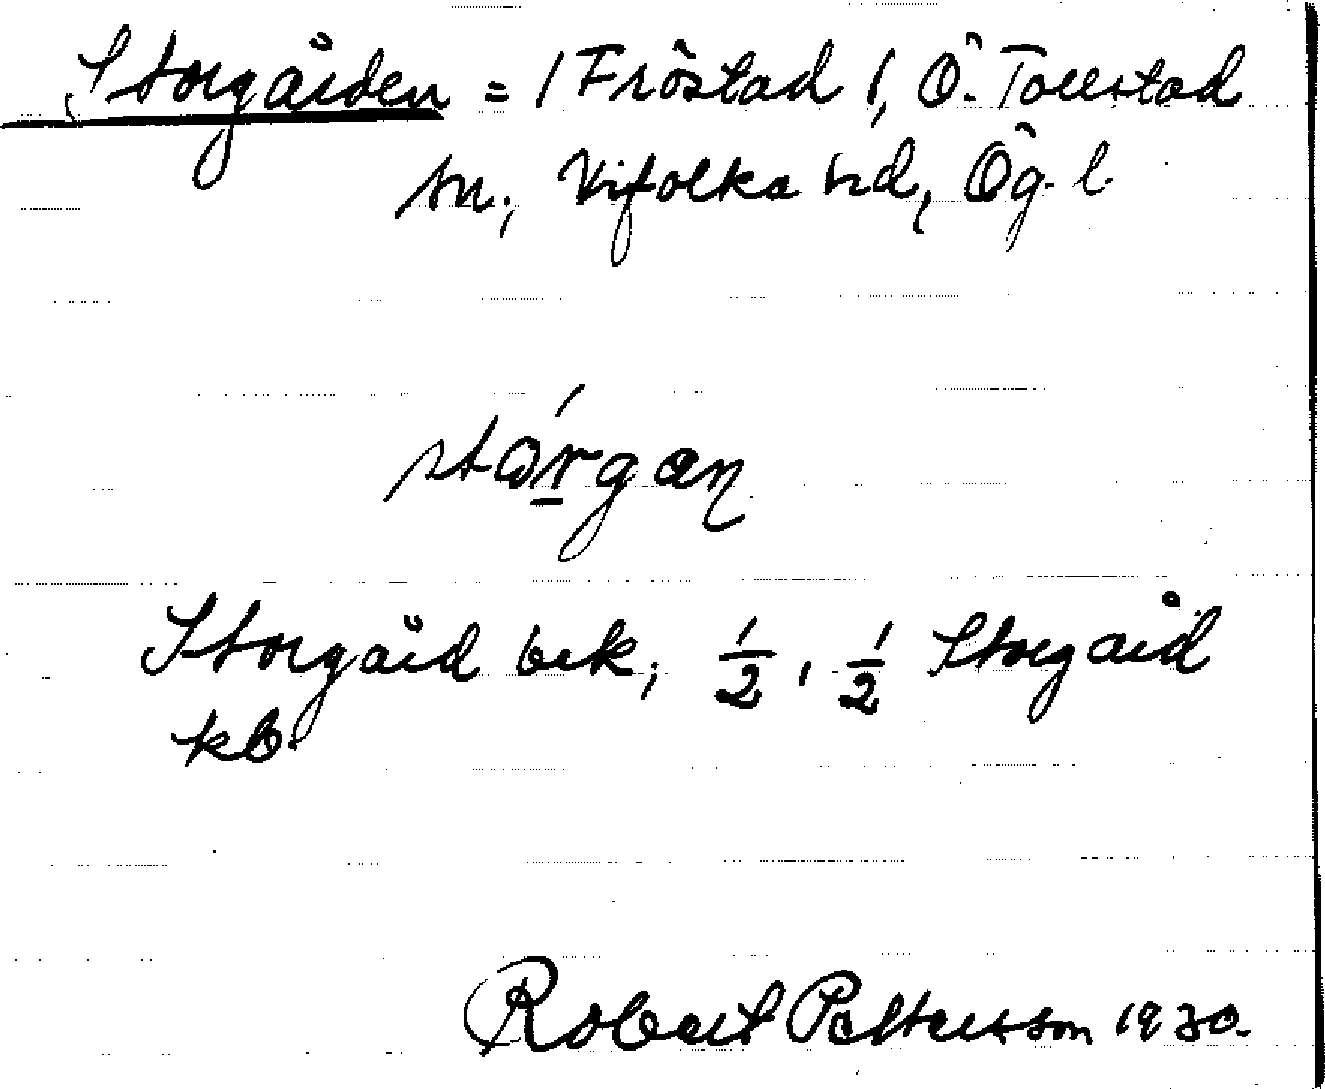 Storgården = 1 Fröstad 1, Ö. Tollstad
sn, Vifolka hd, Ög. l.
stórgan
Storgård jrk, 1/2, 1/2 Storgård
kb.
Robert Pettersson 1930.